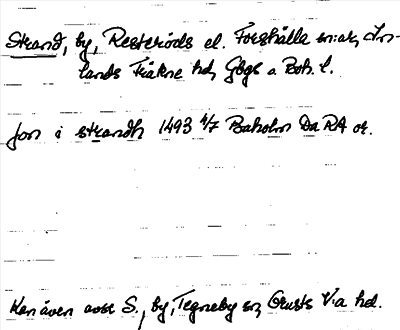 Strand, by, Resteröds el. Forshälla sn:ar, In-
lands Fräkne hd, Gbgs o Boh. l.
jon i strandh 1493 4/7 Baholm Da RA or.
Kan även avse S., by, Tegneby sn, Orusts V:a hd.